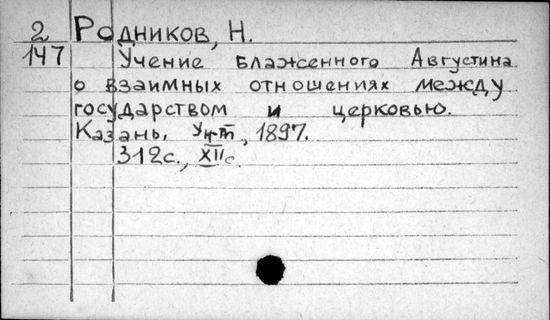 2 Родников, Н.
147 Учение Блаженного Августина
о взаимных отношениях между
государством и церковью.
Казань, Ун-т, 1897.
312с., XIIс.